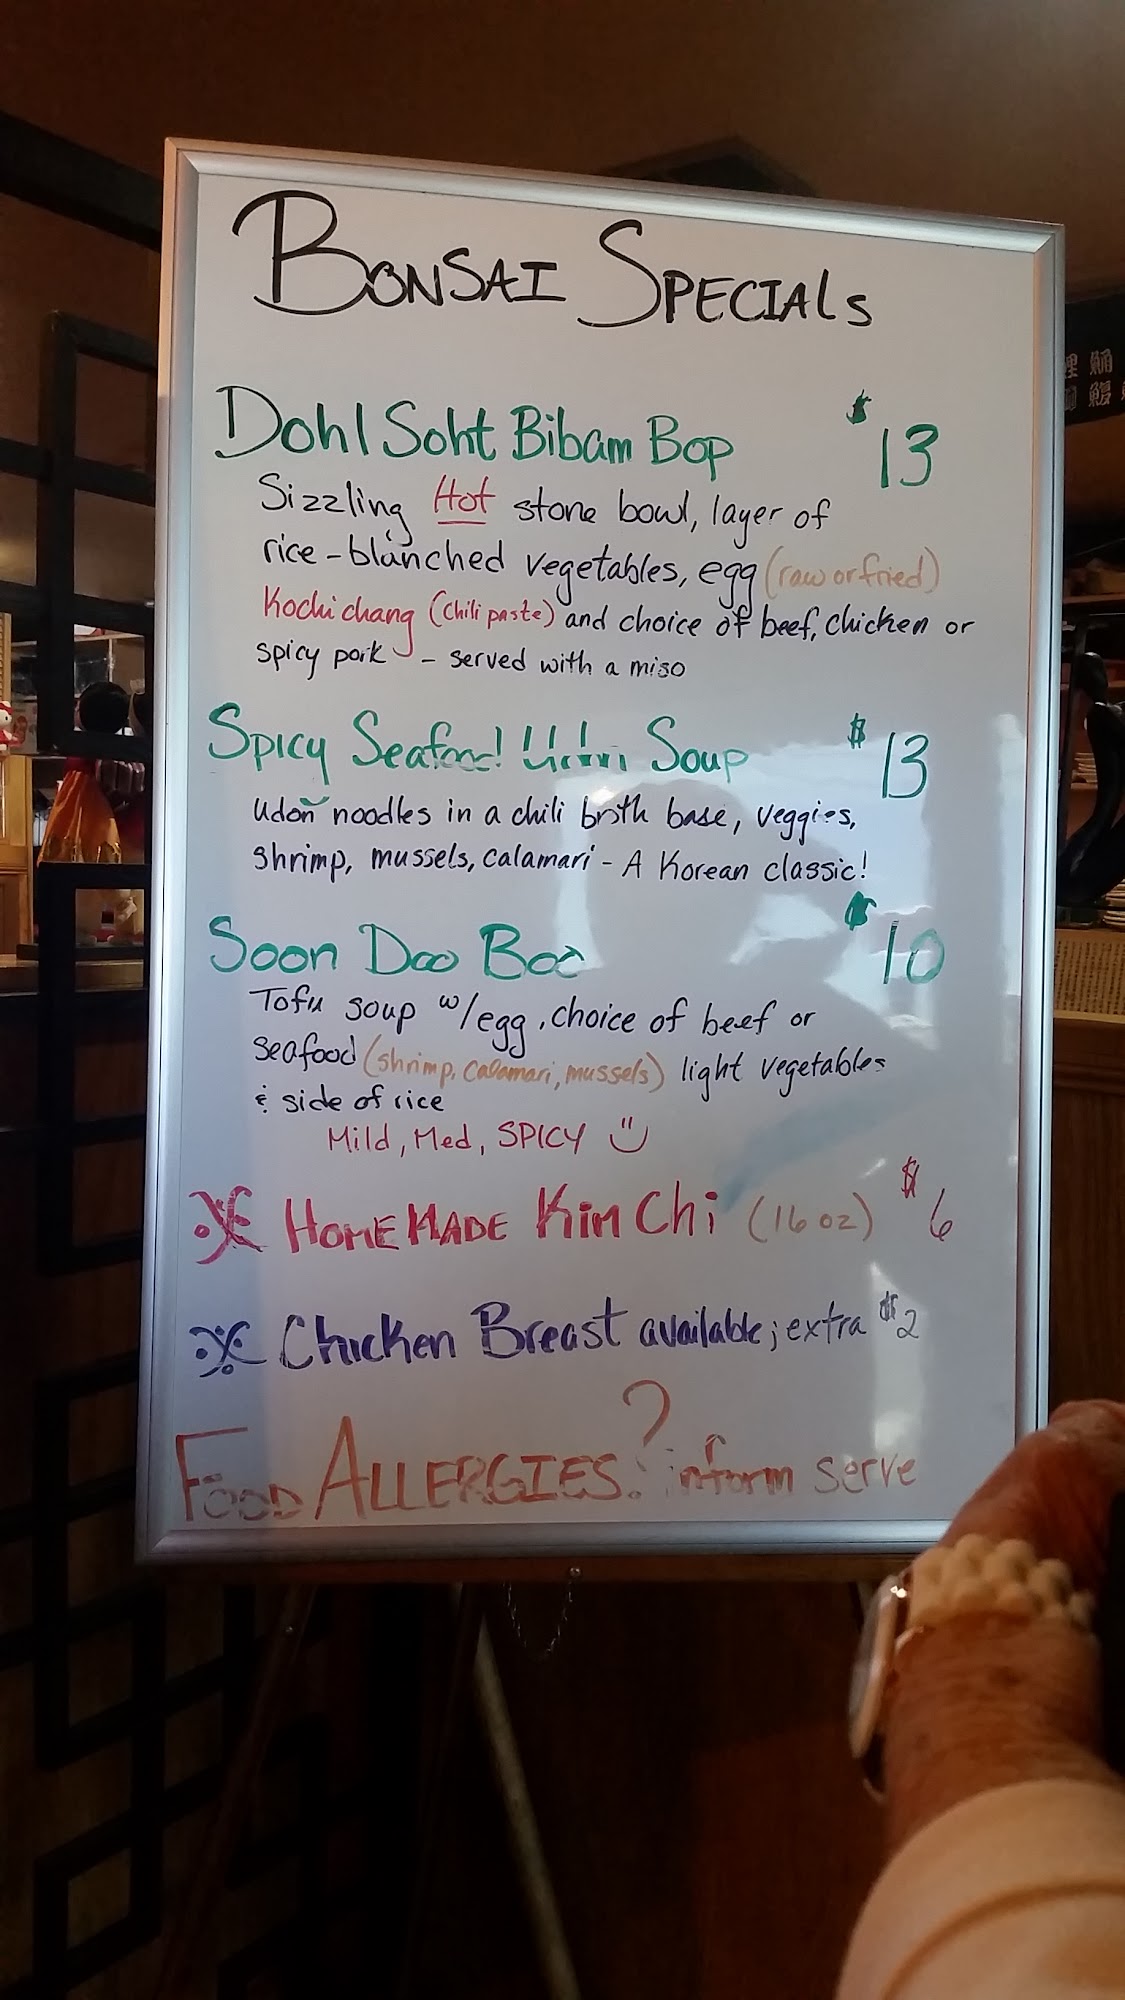 BONSAI SPECIALS
Dohl Soht Bibam Bop $13
Sizzling Hot stone bowl, layer of
rice - blanched vegetables, egg (raw or fried)
Kochi chang (chili paste) and choice of beef, chicken or
spicy pork - served with a miso
Spicy Seafood Udon Soup $13
Udon noodles in a chili broth base, veggies,
shrimp, mussels, calamari - A Korean classic!
Soon Doo Boo $10
Tofu soup w/egg, choice of beef or
seafood (shrimp, calamari, mussels) light vegetables
& side of rice
Mild, Med, SPICY
HOMEMADE Kim Chi (16 oz) $6
Chicken Breast available; extra $2
FOOD ALLERGIES? inform serve